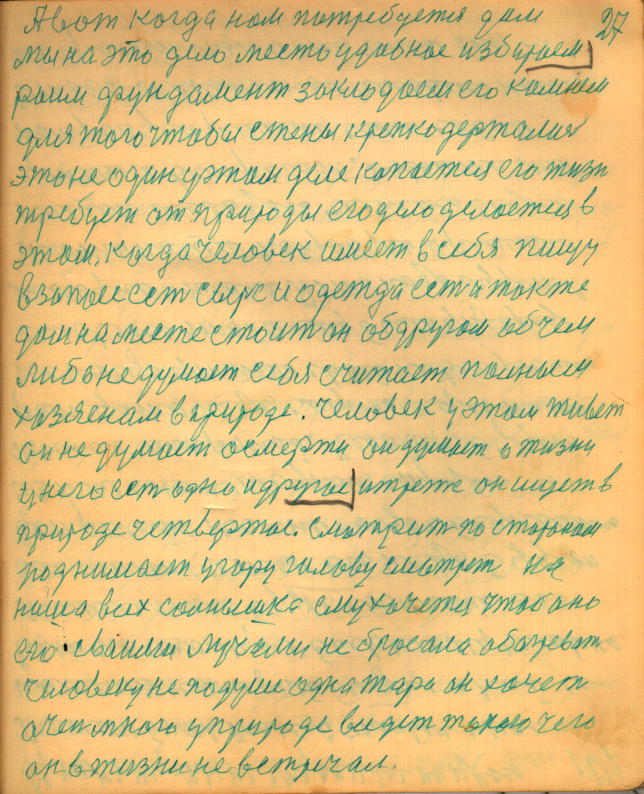 27
А вот когда нам потребуется дом
мы на это дело место удобное избираем
роим фундамент закладоем его камнем
для того чтобы стены крепко держалия
это не один у этом деле копается его жизн
требует от природы его дело делается в
этом. когда человек имеет в себя пищу
в запасе ест сырс и одежда ест и также
дом на месте стоит он об другом об чем
либо не думает себя считает полным
хозяенам в природе. Человек у этом живет
он не думает о смерти он думает о жизни
у него ест одно и другое и трете он ищет в
природе четвертое. Смотрит по сторонам
поднимает угору голову смотрет на
наша всех солнышко ему хочетця чтоб оно
его сваими лучями не бросала обогреват
Человеку не по душе одна пара он хочет
очен много у природе видет токого чего
он в жизни не встречал.